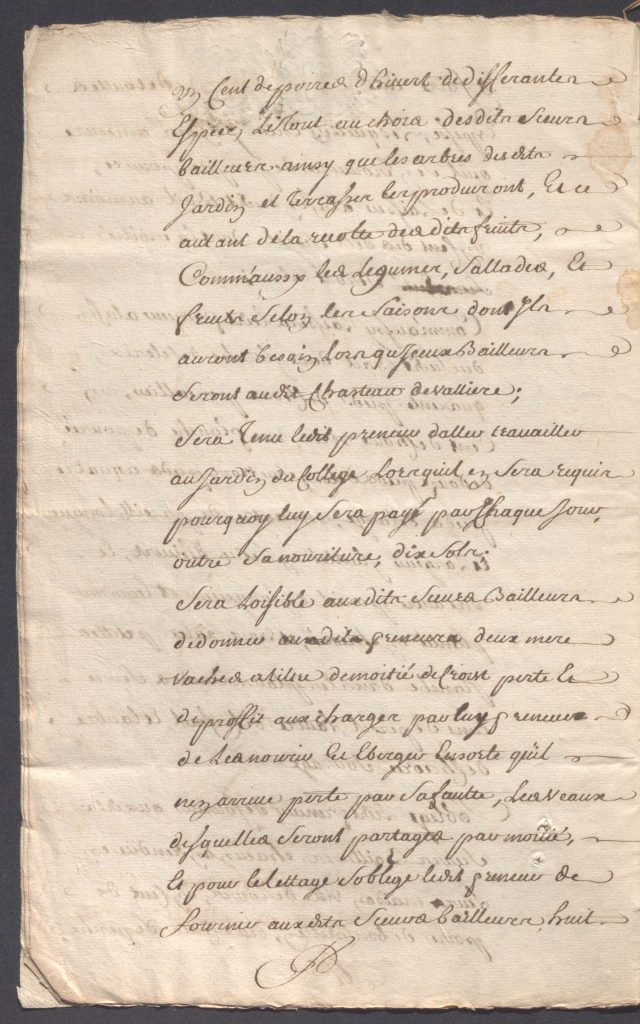 un Cent de poires d'hivert de differantes
Espece, Le tout au choix desdits Sieurs
bailleurs ainsy que les arbres desdits
Jardin et Terrasses les produiront, Et ce
autant de la recolte des dits fruits,
Comm'aussy les Legumes, Sallades, Et
fruits Selon les Saisons dont Ils
auront besoin Lors qu'Iceux Bailleurs
Seront audit Chasteau de valliere;
Sera Tenu ledit preneur d'aller travailler
au Jardin du College Lorsqu'il en Sera requis
pourquoy luy Sera payé par Chaque Jour,
outre Sa nouriture, dix Sols;
Sera Loisible auxdits Sieurs Bailleurs
de donner auxdits preneurs deux mere
vaches a tiltre de moitié de Croist perte Et
de proffit aux charger par luy preneur
de Les nourir Et Eberger En sorte qu'il
n'en arrive perte par Sa fautte, Les veaux
desquelles Seront partagés par moitié,
Et pour le lettage S'oblege ledit preneur de
fournir auxdits Sieurs bailleurs huit